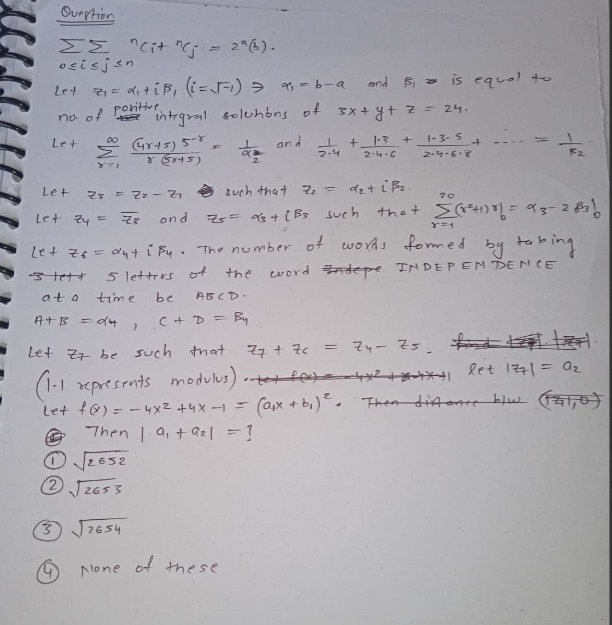 Question
ΣΣ ⁿCi + ⁿCj = 2ᵃ(b).
0≤i≤j≤n
Let z₁ = α₁ + iβ₁ (i=√-1) ∋ α₁ = b-a and β₁ is equal to
no. of positive integral solutions of 3x+y+z = 24.
Let ∞Σr=1 (4r+5) 5⁻ʳ / r(5r+5) = 1/α₂ and 1/2·4 + 1·3/2·4·6 + 1·3·5/2·4·6·8 + ..... = 1/β₂
Let z₃ = z₂ - z₁ such that z₂ = α₂ + iβ₂.
Let z₄ = z̄₃ and z₅ = α₃ + iβ₃ such that 20Σr=1 (r²+1)r! = α₃ - 2β₃!
Let z₆ = α₄ + iβ₄. The number of words formed by taking
5 letters of the word INDEPENDENCE
at a time be ABCD.
A+B = α₄, C+D = β₄
Let z₇ be such that z₇ + z₆ = z₄ - z₅.
(|·| represents modulus) let |z₇| = a₂
Let f(x) = -4x² + 4x - 1 = (a₁x + b₁)².
Then |a₁ + a₂| = ?
① √2652
② √2653
③ √2654
④ None of these